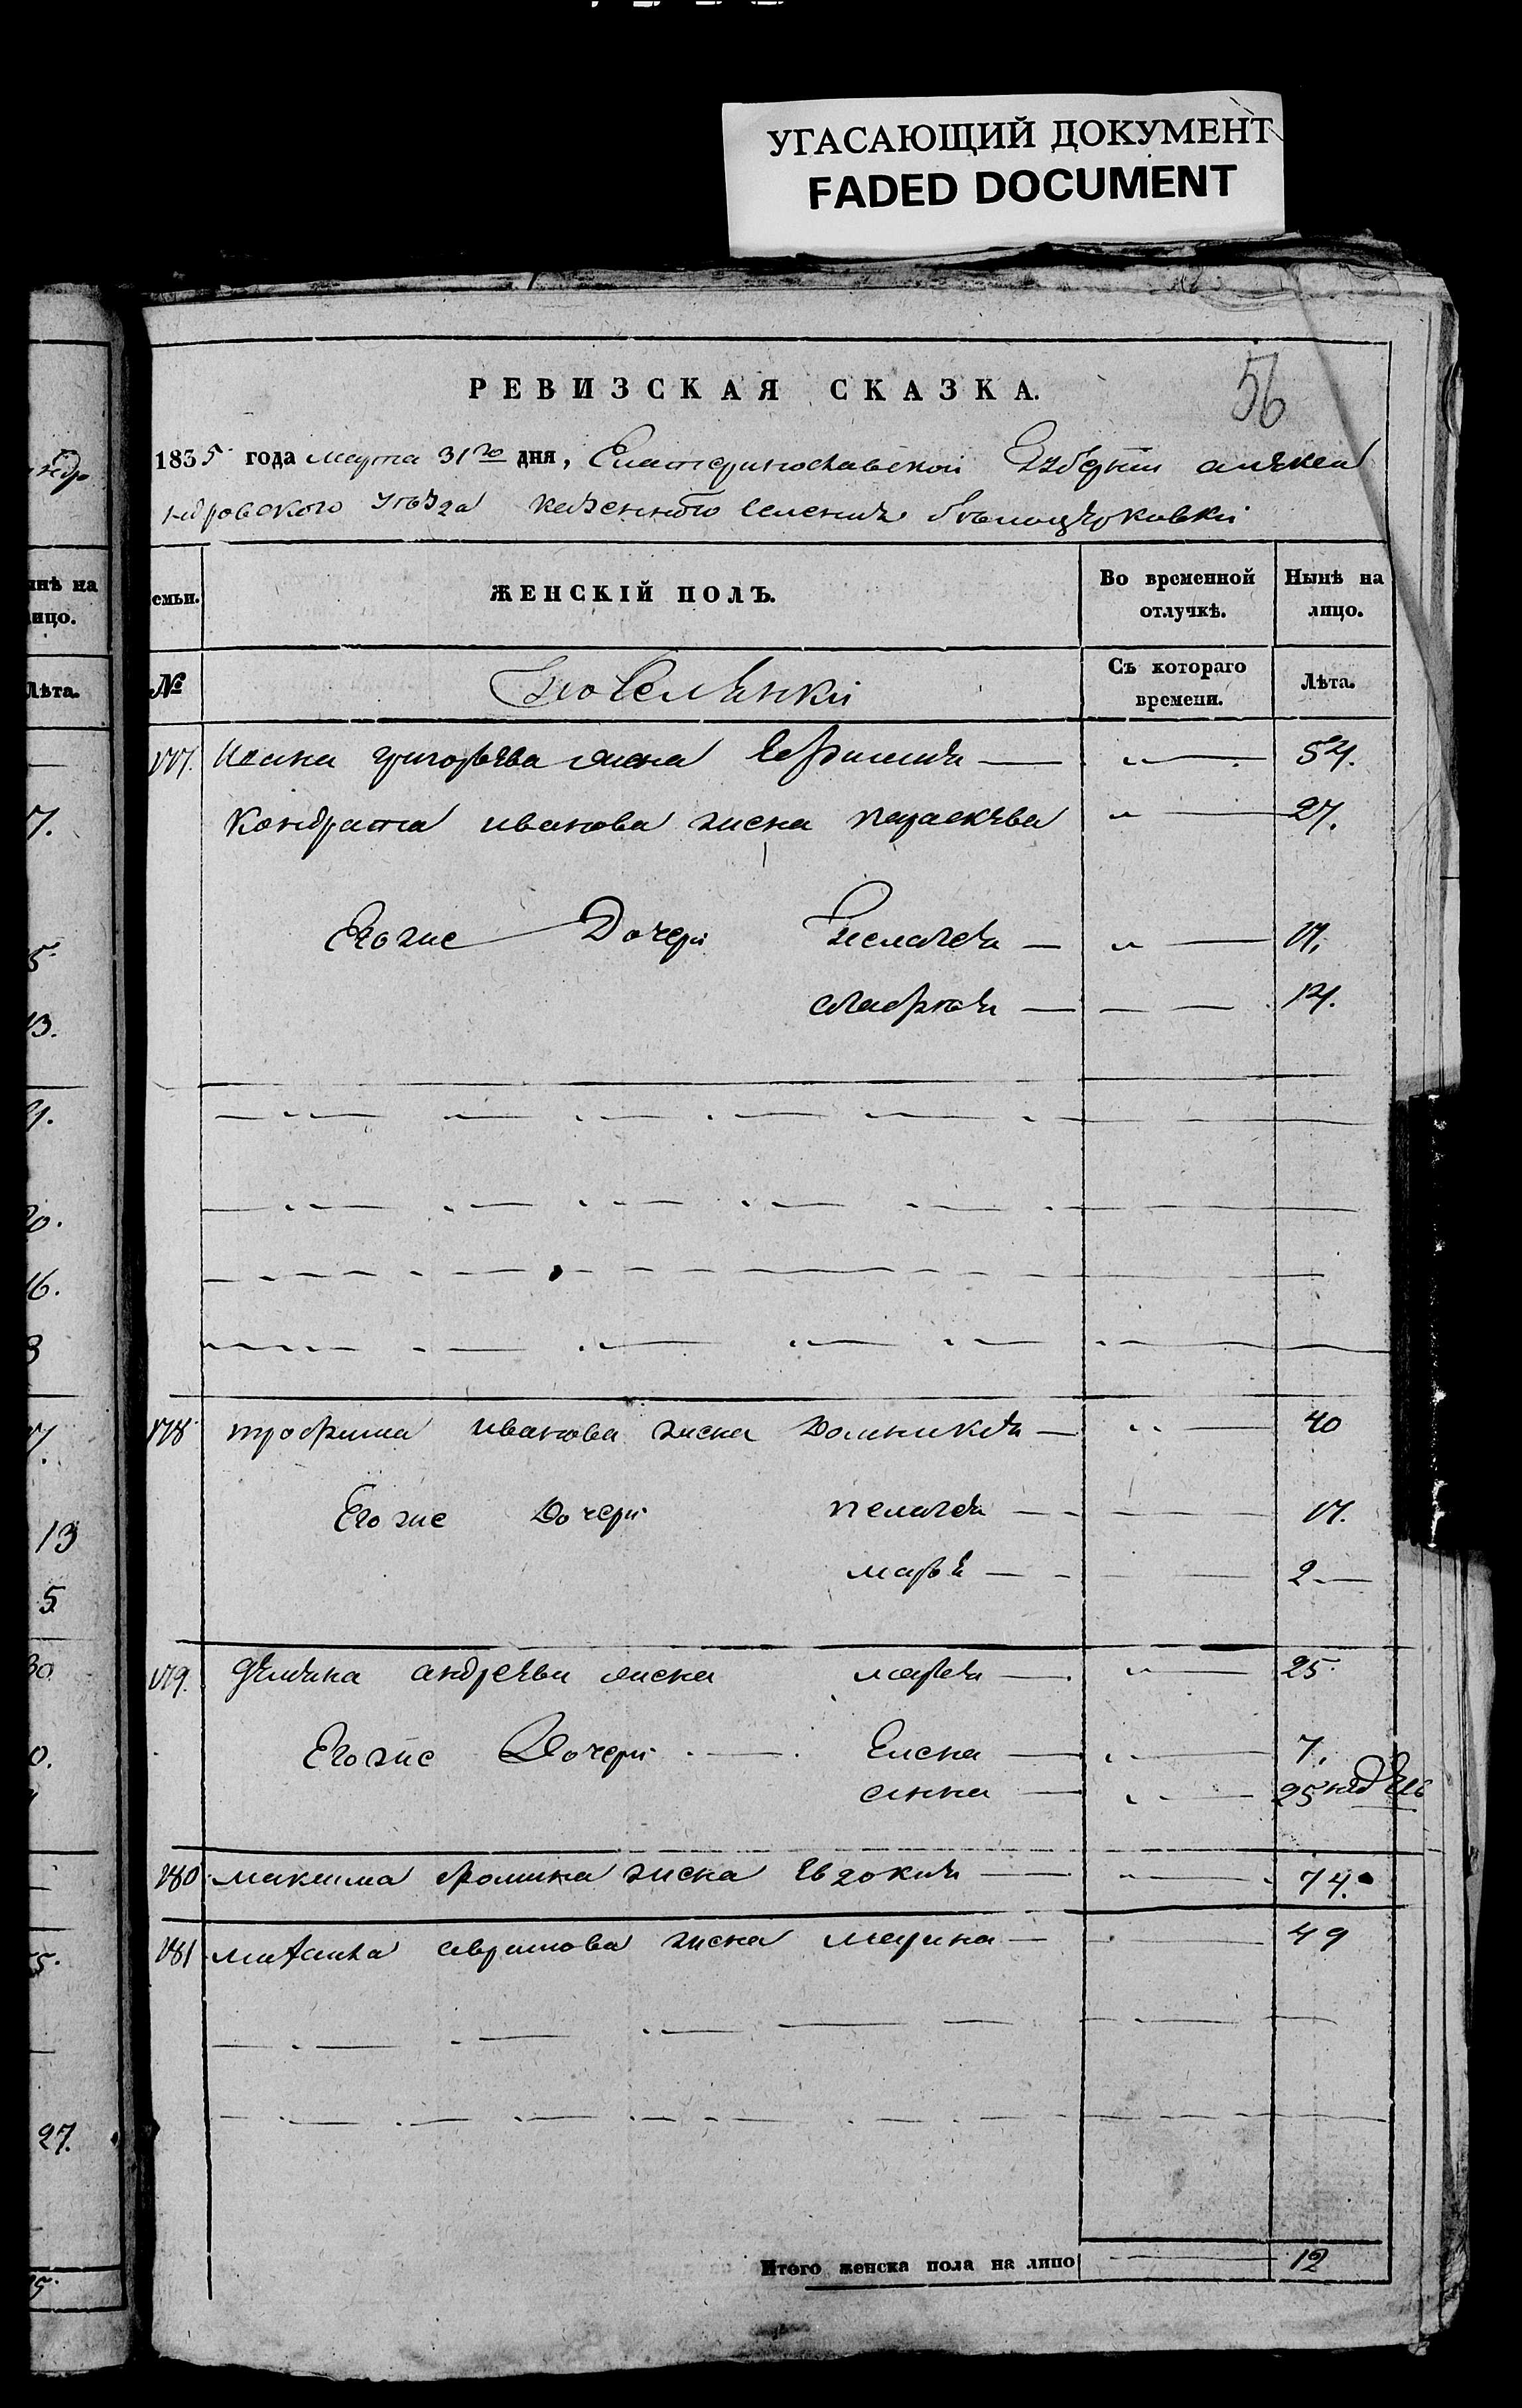 УГАСАЮЩИЙ ДОКУМЕНТ
FADED DOCUMENT
РЕВИЗСКАЯ СКАЗКА.
56
1835 года марта 31го дня, Екатеринославской Губернии алексан
ндровского уезда казенного селения белоцерковки
инѣ на
ицо.
Лѣта.
емьи.
ЖЕНСКІЙ ПОЛЪ.
Во временной отлучкѣ.
Нынѣ на лицо.
№
Поселянки
Съ котораго времени.
Лѣта.
177. григорьева жена Ефимия 54.
Кондрата иванова жена параскева 27.
Его же Дочери Пелагея 17.
14.
178 трофима иванова жена Домникия 40
Его же Дочери пелагея 17.
марья 2
179. демяна андреева жена марфа 25
Его же Дочери Елена 7.
анна 25 недель
180 максима фомина жена Евдокия 74.
181 абрамова жена марина 49
Итого женска пола на лицо 12
13
5
27.